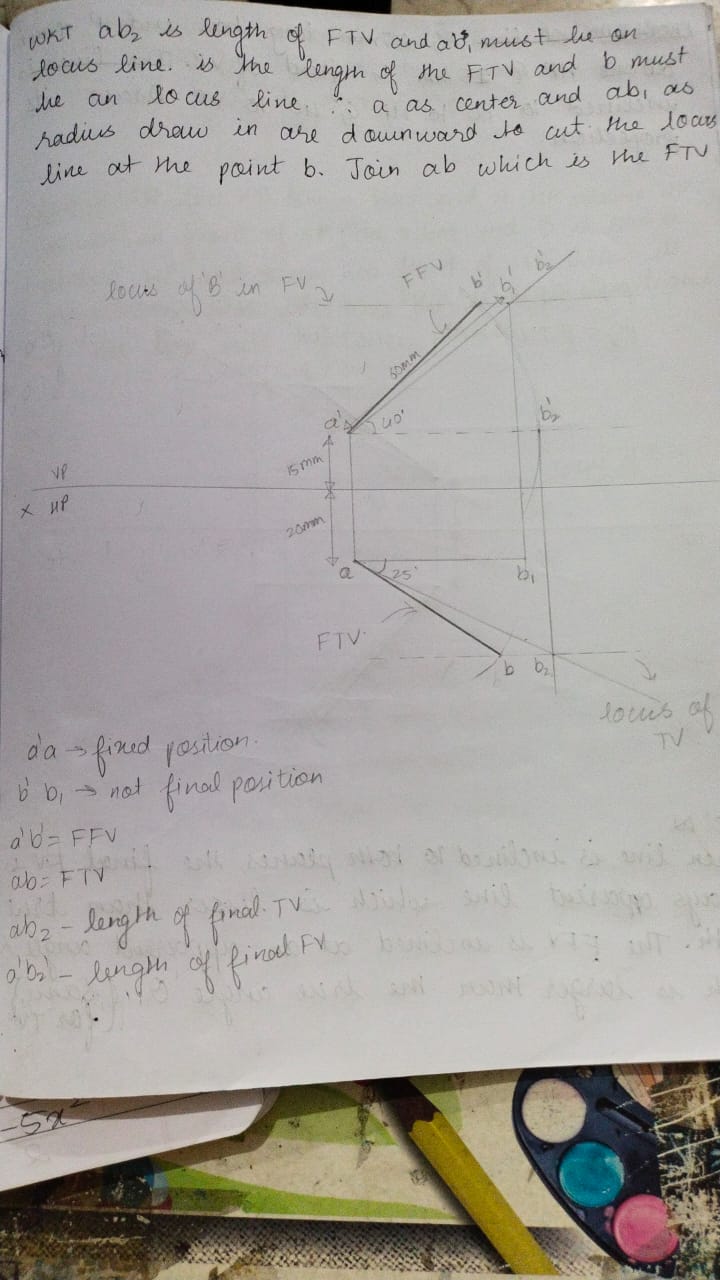 WKT ab₂ is length of FTV and ab'₁ must be on
locus line. is the length of the FTV and b must
be an locus line. ∴ a as center and ab₁ as
radius draw in are downward to cut the locus
line at the point b. Join ab which is the FTV
locus of 'B' in FV
FFV
b'
b₁'
b₂'
60mm
a'
40°
b₂'
15mm
VP
X HP
20mm
a
25°
b₁
FTV
b
b₂
locus of
TV
a'a → fixed position.
b' b₁ → not final position
a'b' = FFV
ab = FTV
ab₂ - length of final TV
a'b₂' - length of final FV
-5x²